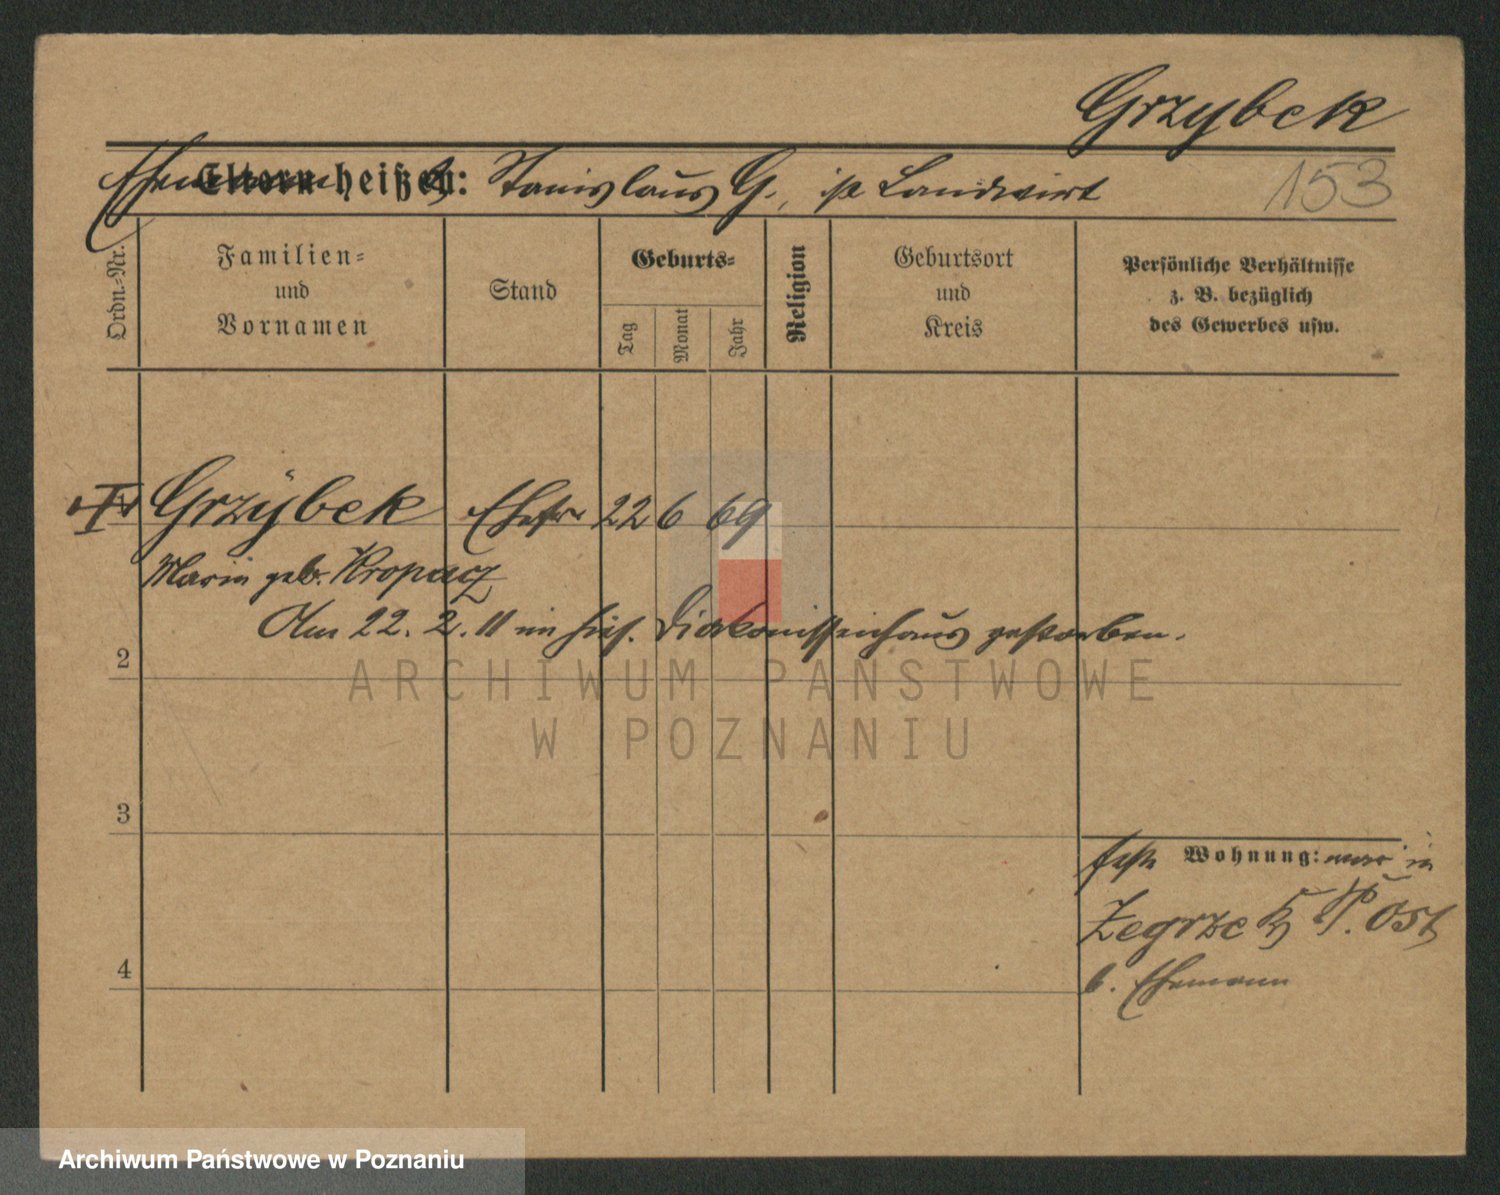 Grzybek
Ehemann heißt: Stanislaus G., ist Landwirt 153
Ordn.-Nr.
Familien-
und
Vornamen
Stand
Geburts-
Tag
Monat
Jahr
Religion
Geburtsort
und
Kreis
Persönliche Verhältnisse
z. B. bezüglich
des Gewerbes usw.
Grzÿbek Ehefr. 22 6 69
Maria geb. Kropacz
Am 22. 2. 11 im hies. Diakonissenhaus gestorben.
2
ARCHIWUM PAŃSTWOWE
W POZNANIU
3
feste Wohnung: war in
Zegrze Kr. P. Ost
b. Ehemann
4
Archiwum Państwowe w Poznaniu